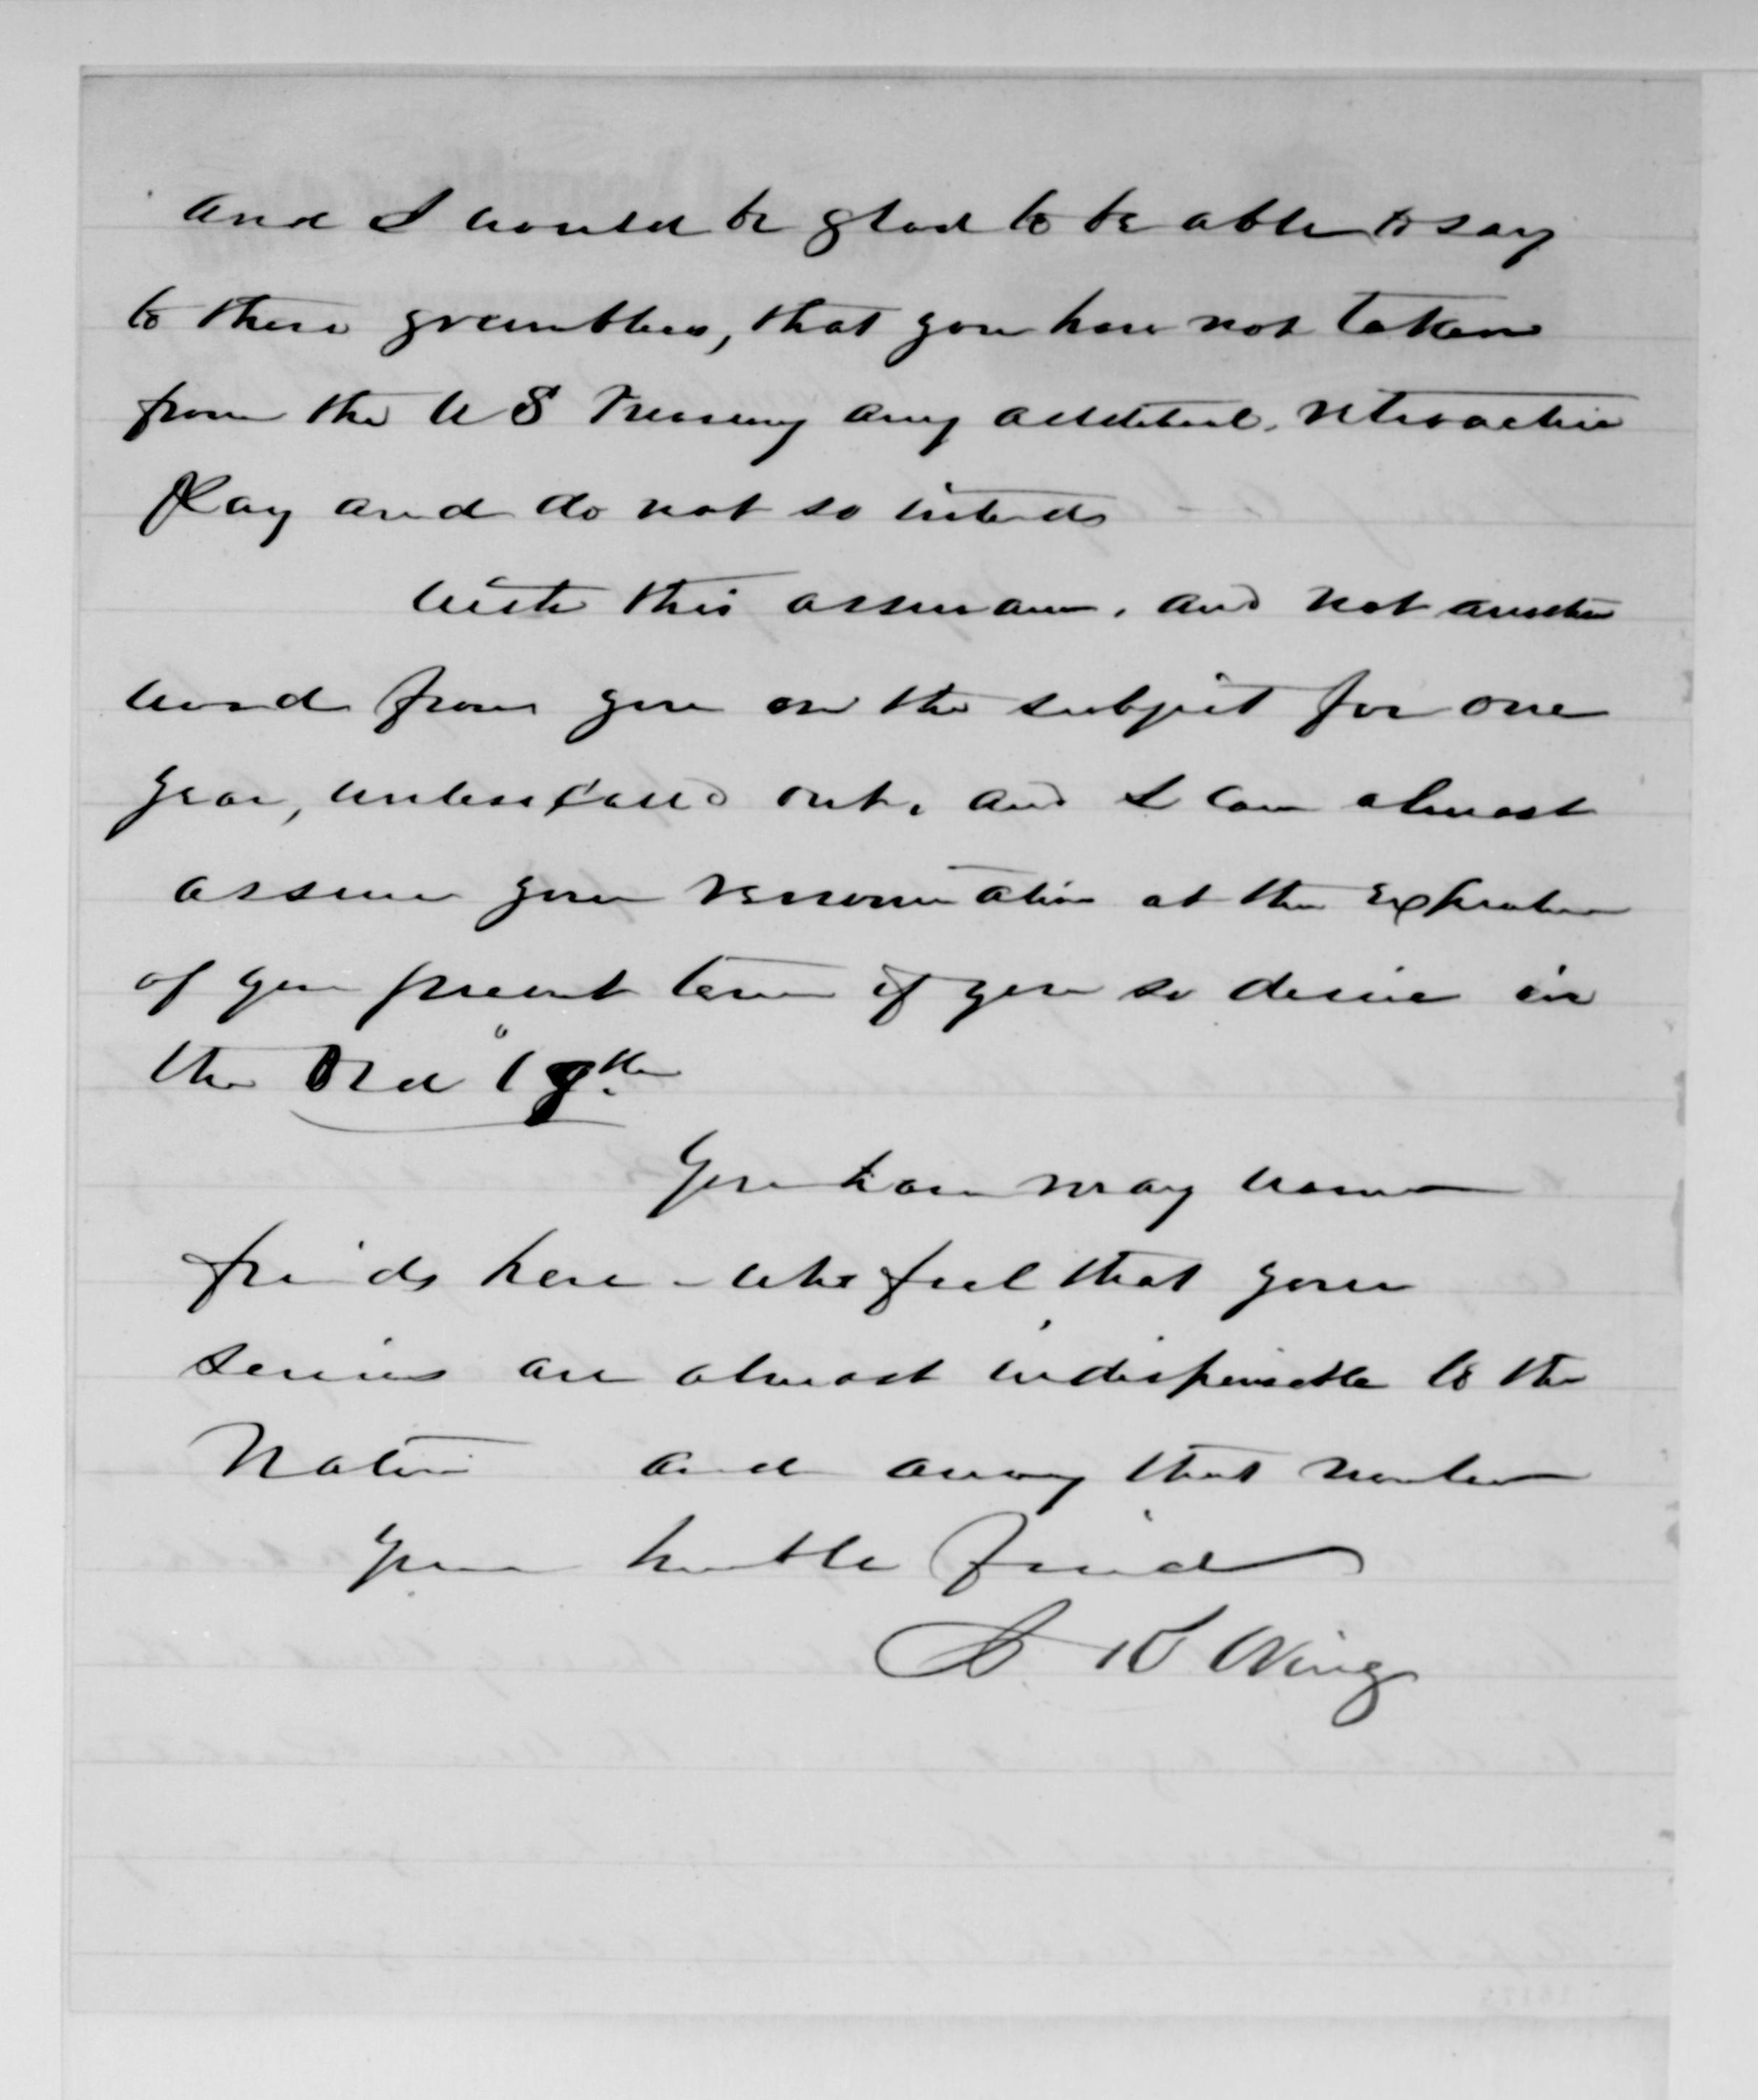 and I would be glad to be able to say
to these grumblers, that you have not taken
from the U S Treasury any additional, retroactive
Pay and do not so intend
With this assurance, and not another
word from you on the subject for one
year, unless called out, and I can almost
assure your renomination at the expiration
of your present term if you so desire in
the Old "19th
You have many warm
friends here - who feel that your
services are almost indispensable to the
Nation and among that number
Your humble friend
Wing